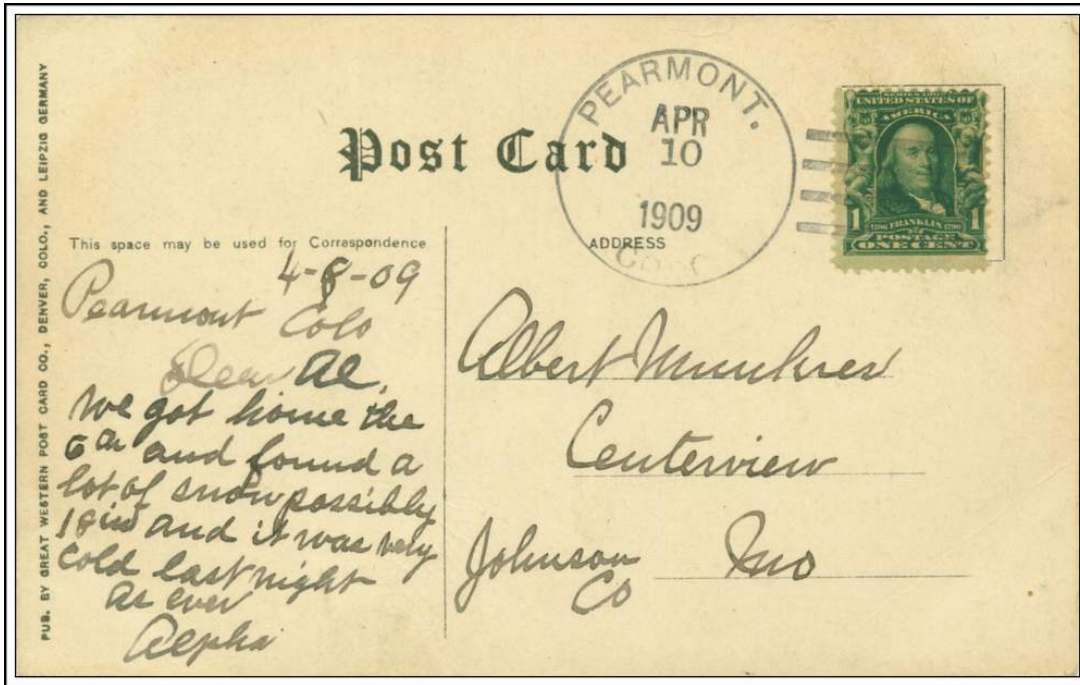 PUB. BY GREAT WESTERN POST CARD CO., DENVER, COLO., AND LEIPZIG GERMANY
Post Card
PEARMONT.
APR
10
1909
COLO
SERIES 1902
UNITED STATES OF
AMERICA
1706 FRANKLIN 1790
1 1
POSTAGE
ONE CENT
This space may be used for Correspondence
ADDRESS
4-8-09
Pearmont Colo
Dear Al,
We got home the
6th and found a
lot of snow possibly
18 in and it was very
cold last night
As ever
Alpha
Albert Munkres
Centerview
Johnson Mo
Co